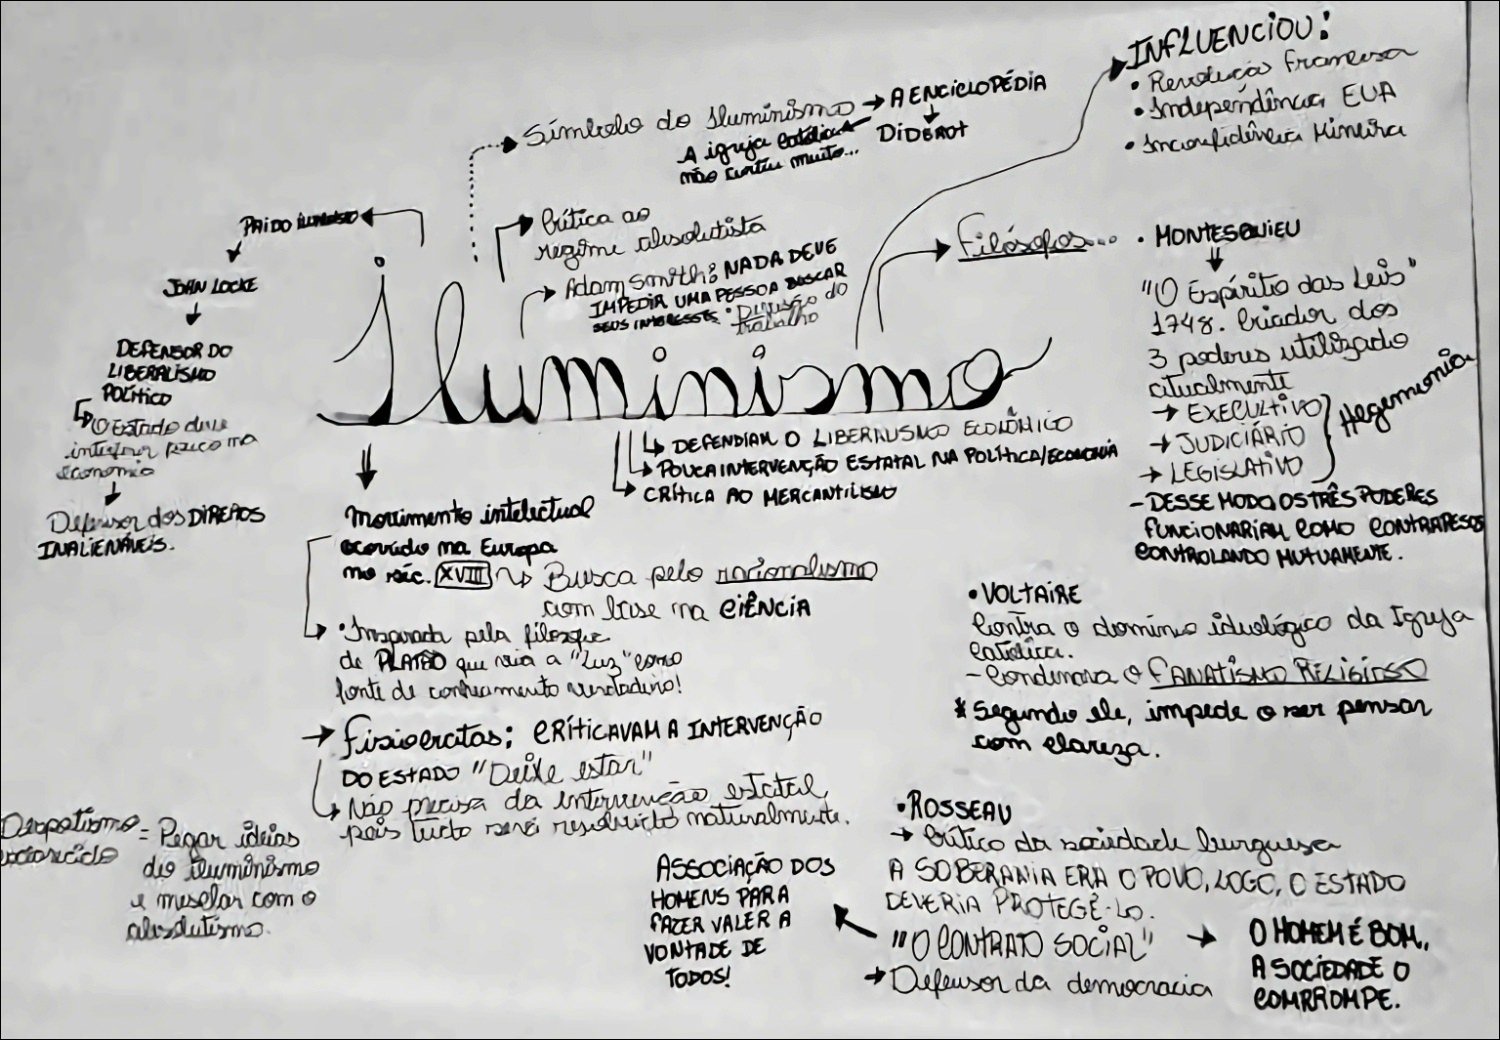 INFLUENCIOU:
• Revolução Francesa
• Independência EUA
• Inconfidência Mineira
Símbolo do Iluminismo → A ENCICLOPÉDIA
DIDEROT
A igreja católica
não curtiu muito...
Crítica ao
regime absolutista
Adam Smith: NADA DEVE
IMPEDIR UMA PESSOA BUSCAR
SEUS INTERESSES • Divisão do
trabalho
PAI DO
JOHN LOCKE
DEFENSOR DO
LIBERALISMO
POLÍTICO
O Estado deve
interferir pouco na
economia
Defensor dos DIREITOS
INALIENÁVEIS.
Iluminismo
DEFENDIAM O LIBERALISMO ECONÔMICO
POUCA INTERVENÇÃO ESTATAL NA POLÍTICA/ECONOMIA
CRÍTICA AO MERCANTILISMO
Movimento intelectual
ocorrido na Europa
no séc. XVIII → Busca pelo racionalismo
com base na CIÊNCIA
• Inspirada pela filosofia
de PLATÃO que via a "Luz" como
fonte de conhecimento verdadeiro!
→ Fisiocratas: CRÍTICAVAM A INTERVENÇÃO
DO ESTADO "Deixe estar"
Não precisa da intervenção estatal,
pois tudo será resolvido naturalmente.
Despotismo = Pegar ideias
esclarecido do iluminismo
e mesclar com o
absolutismo.
Filósofos...
• MONTESQUIEU
"O Espírito das Leis"
1748. Criador dos
3 poderes utilizado
atualmente
→ EXECULTIVO
→ JUDICIÁRIO
→ LEGISLATIVO
Hegemonia
- DESSE MODO OS TRÊS PODERES
FUNCIONARIAM COMO CONTRAPESOS
CONTROLANDO MUTUAMENTE.
• VOLTAIRE
Contra o domínio ideológico da Igreja
Católica.
- Condenava o FANATISMO RELIGIOSO
* Segundo ele, impede o ser pensar
com clareza.
• ROSSEAU
→ Crítico da sociedade burguesa
A SOBERANIA ERA O POVO, LOGO, O ESTADO
DEVERIA PROTEGÊ-LO.
"O CONTRATO SOCIAL"
→ Defensor da democracia
ASSOCIAÇÃO DOS
HOMENS PARA
FAZER VALER A
VONTADE DE
TODOS!
O HOMEM É BOM,
A SOCIEDADE O
CORROMPE.